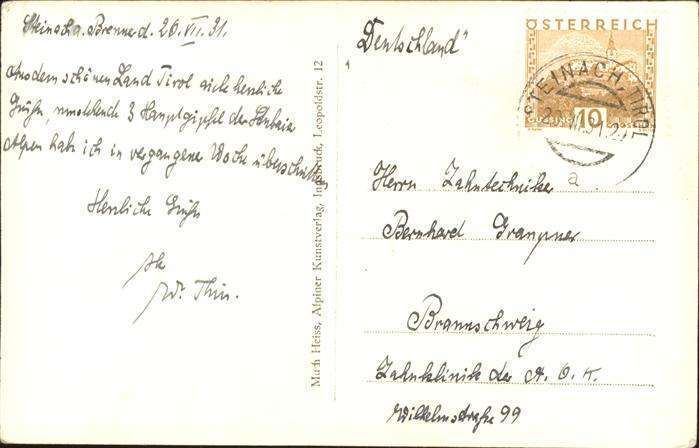 Steinach a. Brenner d. 26. VII. 31.
Aus dem schönen Land Tirol viele herzliche
Grüße, umstehende 3 Hauptgipfel der Stubaier
Alpen habe ich in vergangener Woche überschritten
Herzliche Grüße
"Deutschland"
ÖSTERREICH
GÜSSING 10
STEINACH, TIROL
Herrn Zahntechniker
a
Bernhard
Braunschweig
Zahnklinik der A. O. K.
Wilhelmstraße 99
Much Heiss, Alpiner Kunstverlag, Innsbruck, Leopoldstr. 12